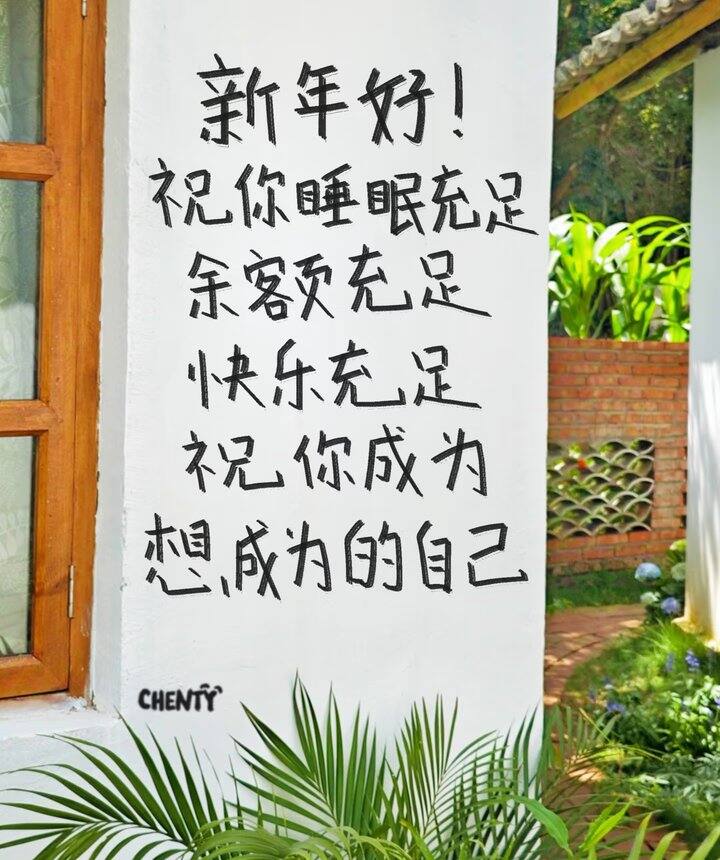 新年好!
祝你睡眠充足
余额充足
快乐充足
祝你成为
想成为的自己
CHENTY